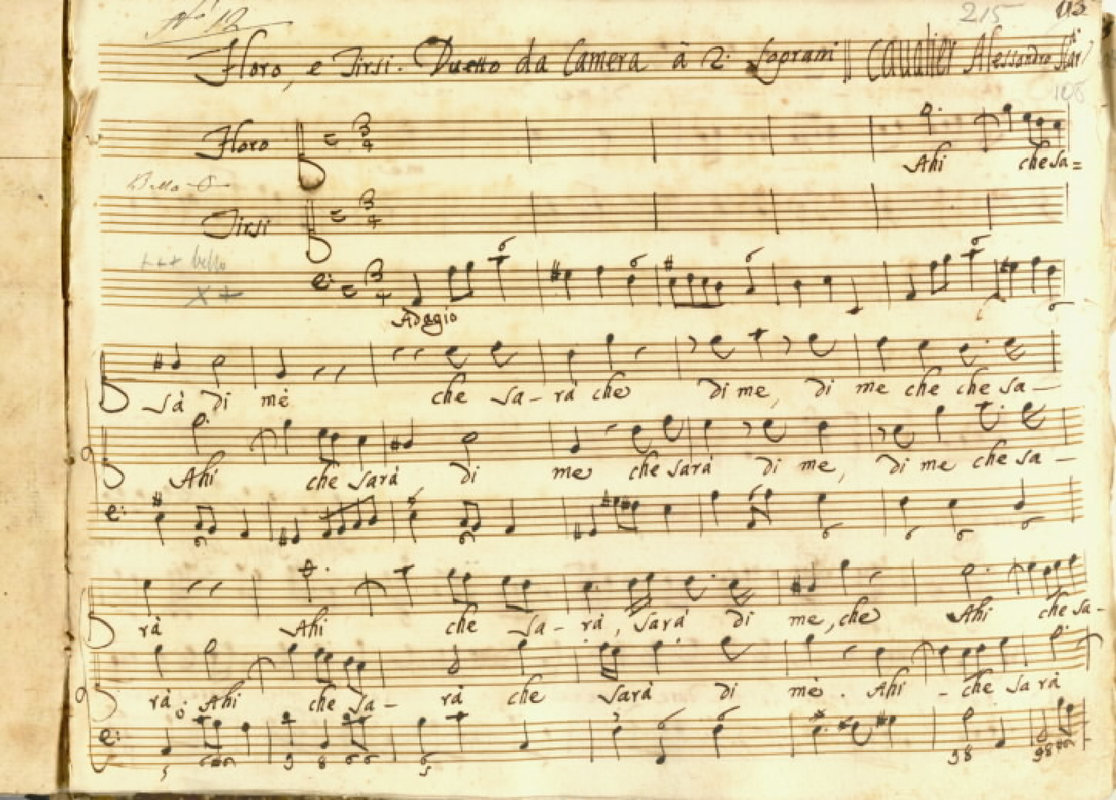 No. 12 215 113
Floro, e Tirsi. Duetto da Camera à 2. Soprani || Cavalier Alessandro Scar
108
Floro
Ahi che sa=
Bella
Tirsi
+++ bello
x +
Adagio
sà di mè che sa-rà che di me, di me che che sa-
Ahi che sarà di me che sarà di me, di me che sa-
rà Ahi che sa-rà, sarà di me, che Ahi che sa-
rà Ahi che sa-rà che sarà di mè. Ahi - che sarà
5 9 8 6 5 98 98